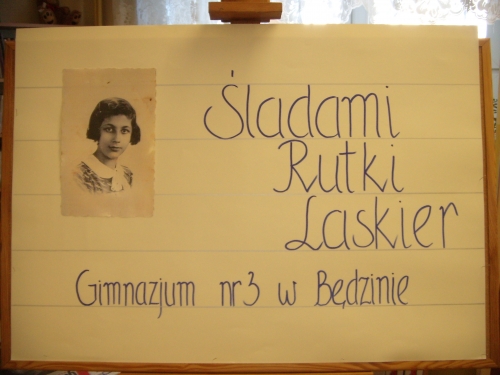 Śladami
Rutki
Laskier
Gimnazjum nr 3 w Będzinie